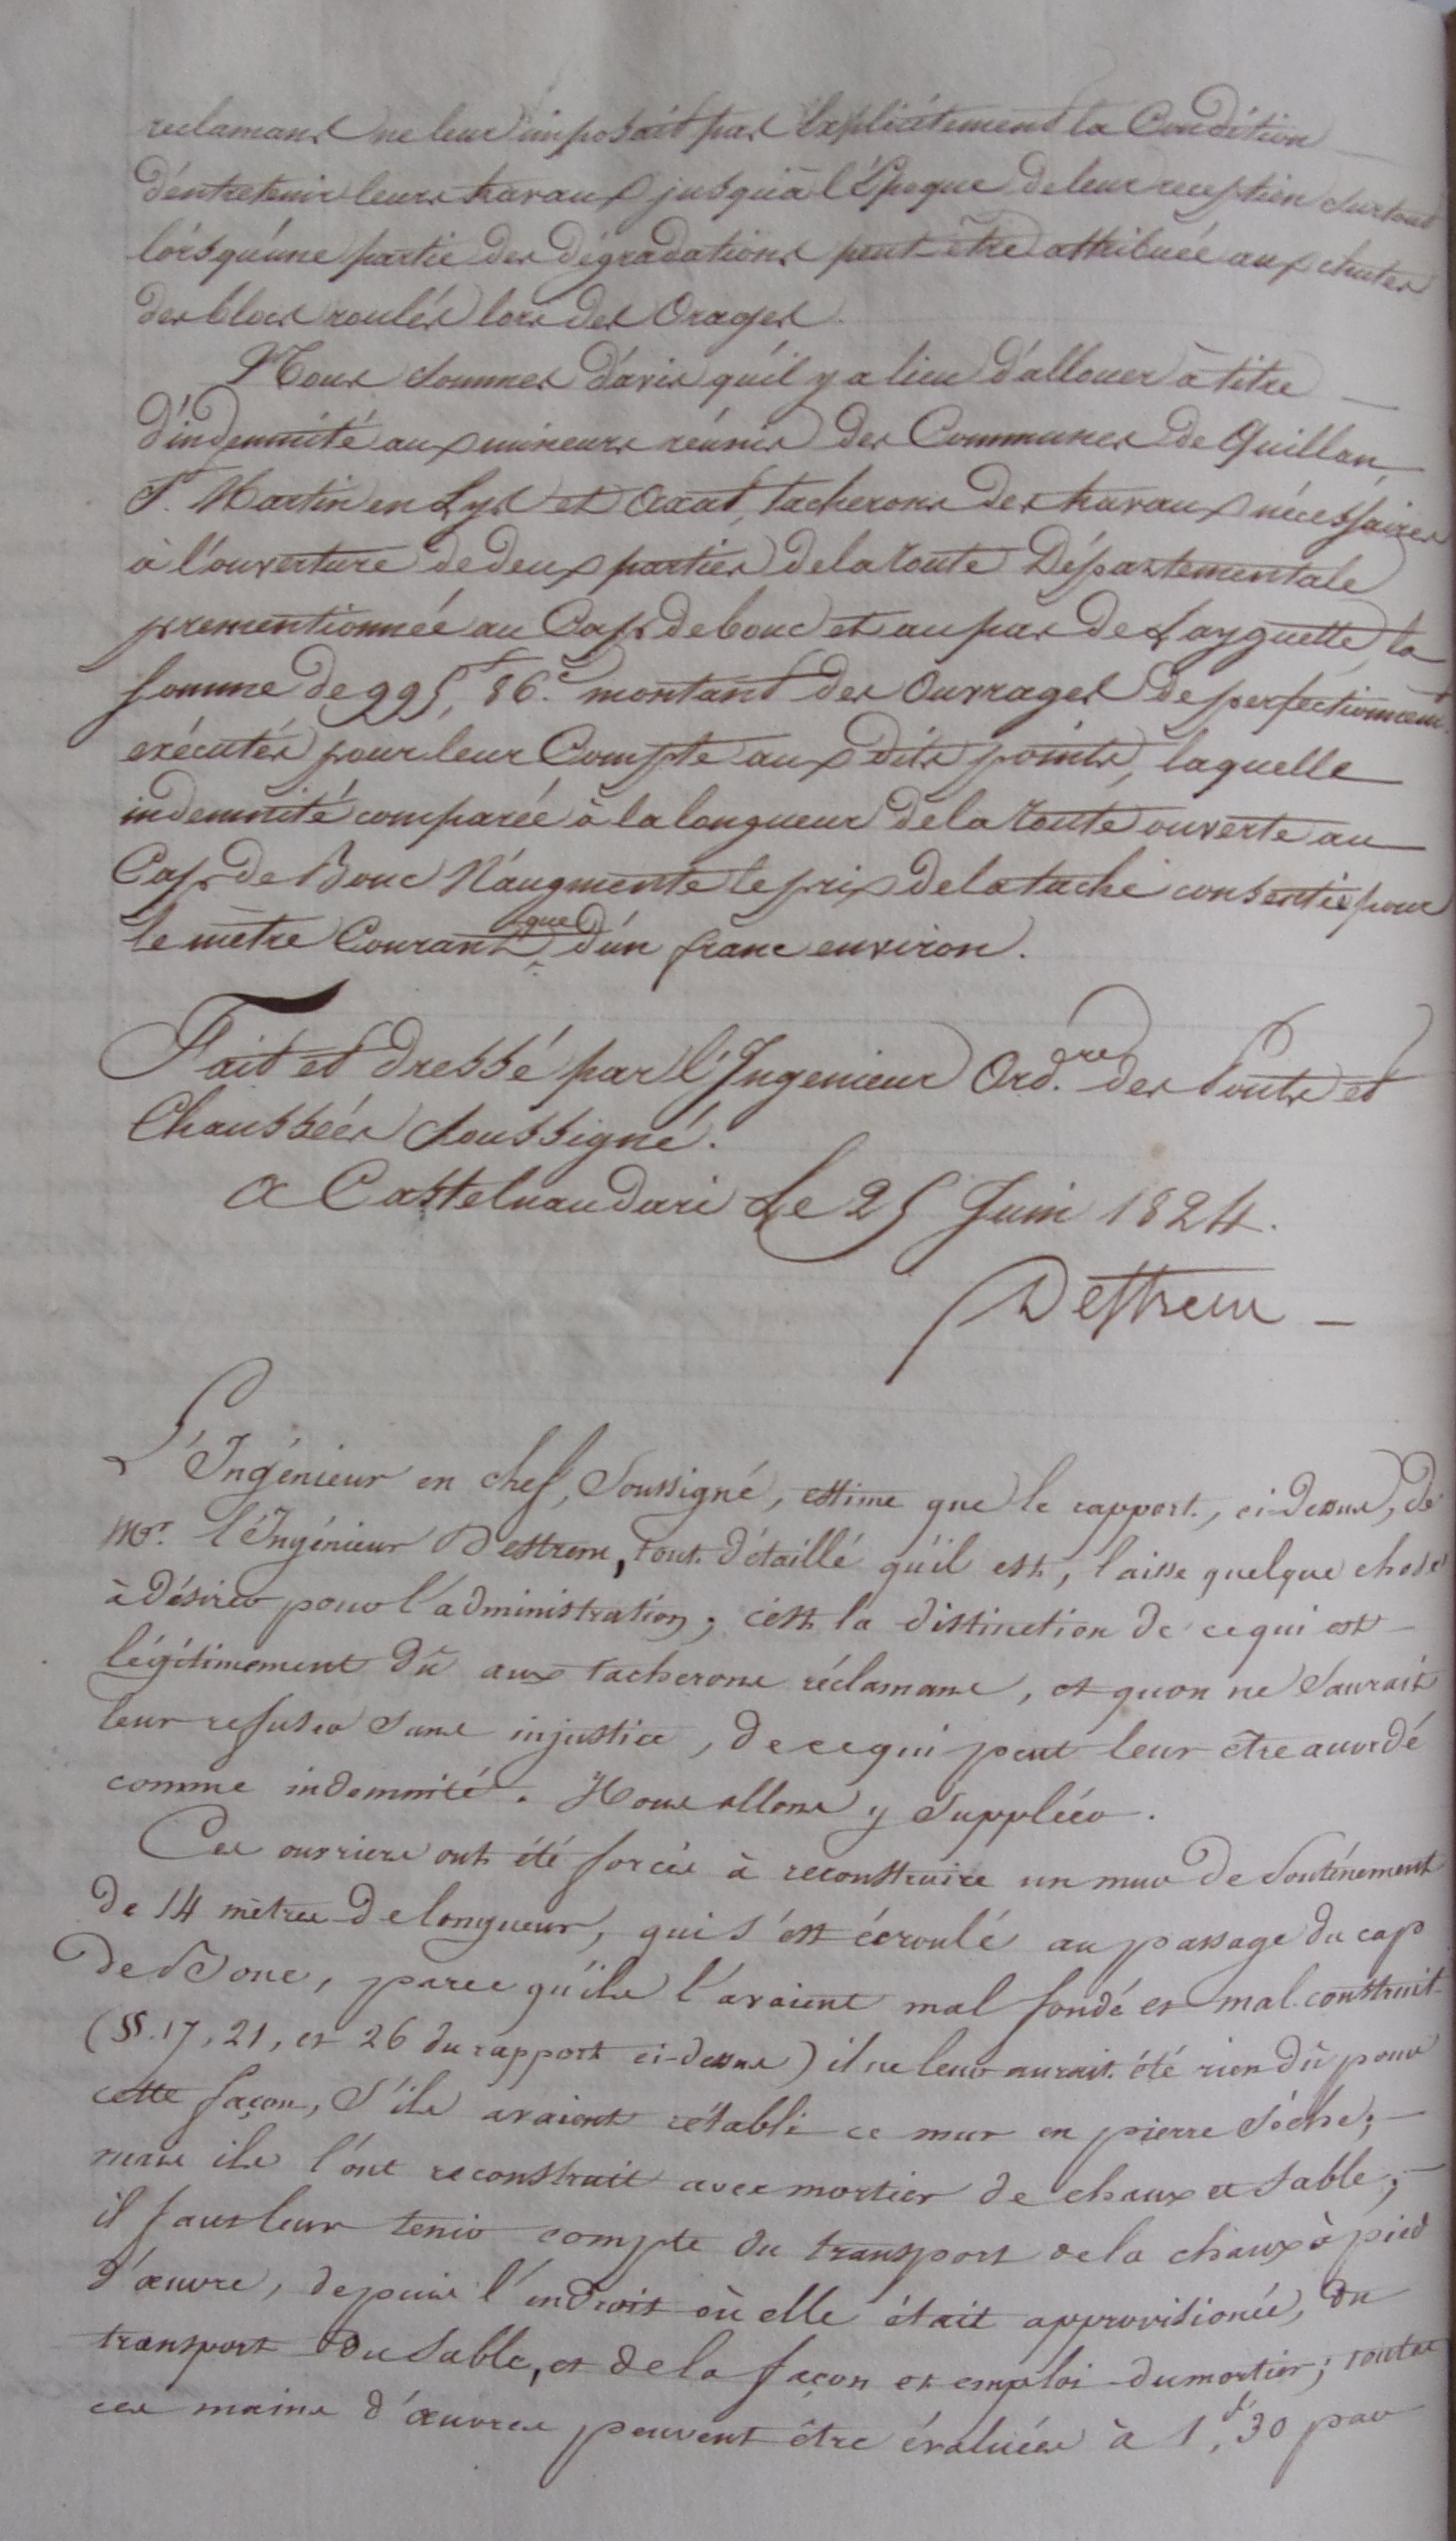 reclamans ne leur imposait pas explicitement la Condition
d'entretenir leurs travaux jusqu'à l'Epoque de leur reception surtout
lorsqu'une partie des dégradations peut-être attribuée aux chutes
des blocs roulés lors des Orages.
Nous sommes d'avis qu'il y a lieu d'allouer à titre
d'indemnité aux mineurs réunis des Communes de Quillan,
St. Martin en Lys et Axat, tacherons des travaux nécessaires
à l'ouverture de deux parties de la route Départementale
prementionnée au Cap de bouc et au pas de Layguette, la
somme de 995f, 86c. montant des Ouvrages de perfectionnemt.
exécutés pour leur Compte aux dits points, laquelle
indemnité comparée à la longueur de la route ouverte au
Cap de Bouc N'augmente le prix de la tache consentie pour
le mètre Courant que d'un franc environ.
Fait et dressé par l'Ingenieur Ord.re des Ponts et
Chaussées soussigné.
A Castelnaudari Le 25 Juin 1824.
Destrem
L'Ingénieur en chef, soussigné, estime que le rapport, ci-dessus, de
Mr. l'Ingénieur Destrem, tout détaillé qu'il est, laisse quelque chose
à désirer pour l'administration; c'est la distinction de ce qui est
légitimement dû aux tacherons réclamans, et qu'on ne saurait
leur refuser sans injustice, de ce qui peut leur être accordé
comme indemnité. Nous allons y suppléer.
Ces ouvriers ont été forcés à reconstruire un mur de soutènement
de 14 mètres de longueur, qui s'est écroulé au passage du cap
de Bouc, parce qu'ils l'avaient mal fondé et mal construit
(SS. 17, 21, et 26 du rapport ci-dessus) il ne leur aurait été rien dû pour
cette façon, s'ils avaient rétabli ce mur en pierre sèche;
mais ils l'ont reconstruit avec mortier de chaux et sable;
il faut leur tenir compte du transport de la chaux à pied
d'œuvre, depuis l'endroit où elle était approvisionée, du
transport du sable, et de la façon et emploi du mortier; toutes
ces mains d'œuvres peuvent être évaluées à 1f,30 par